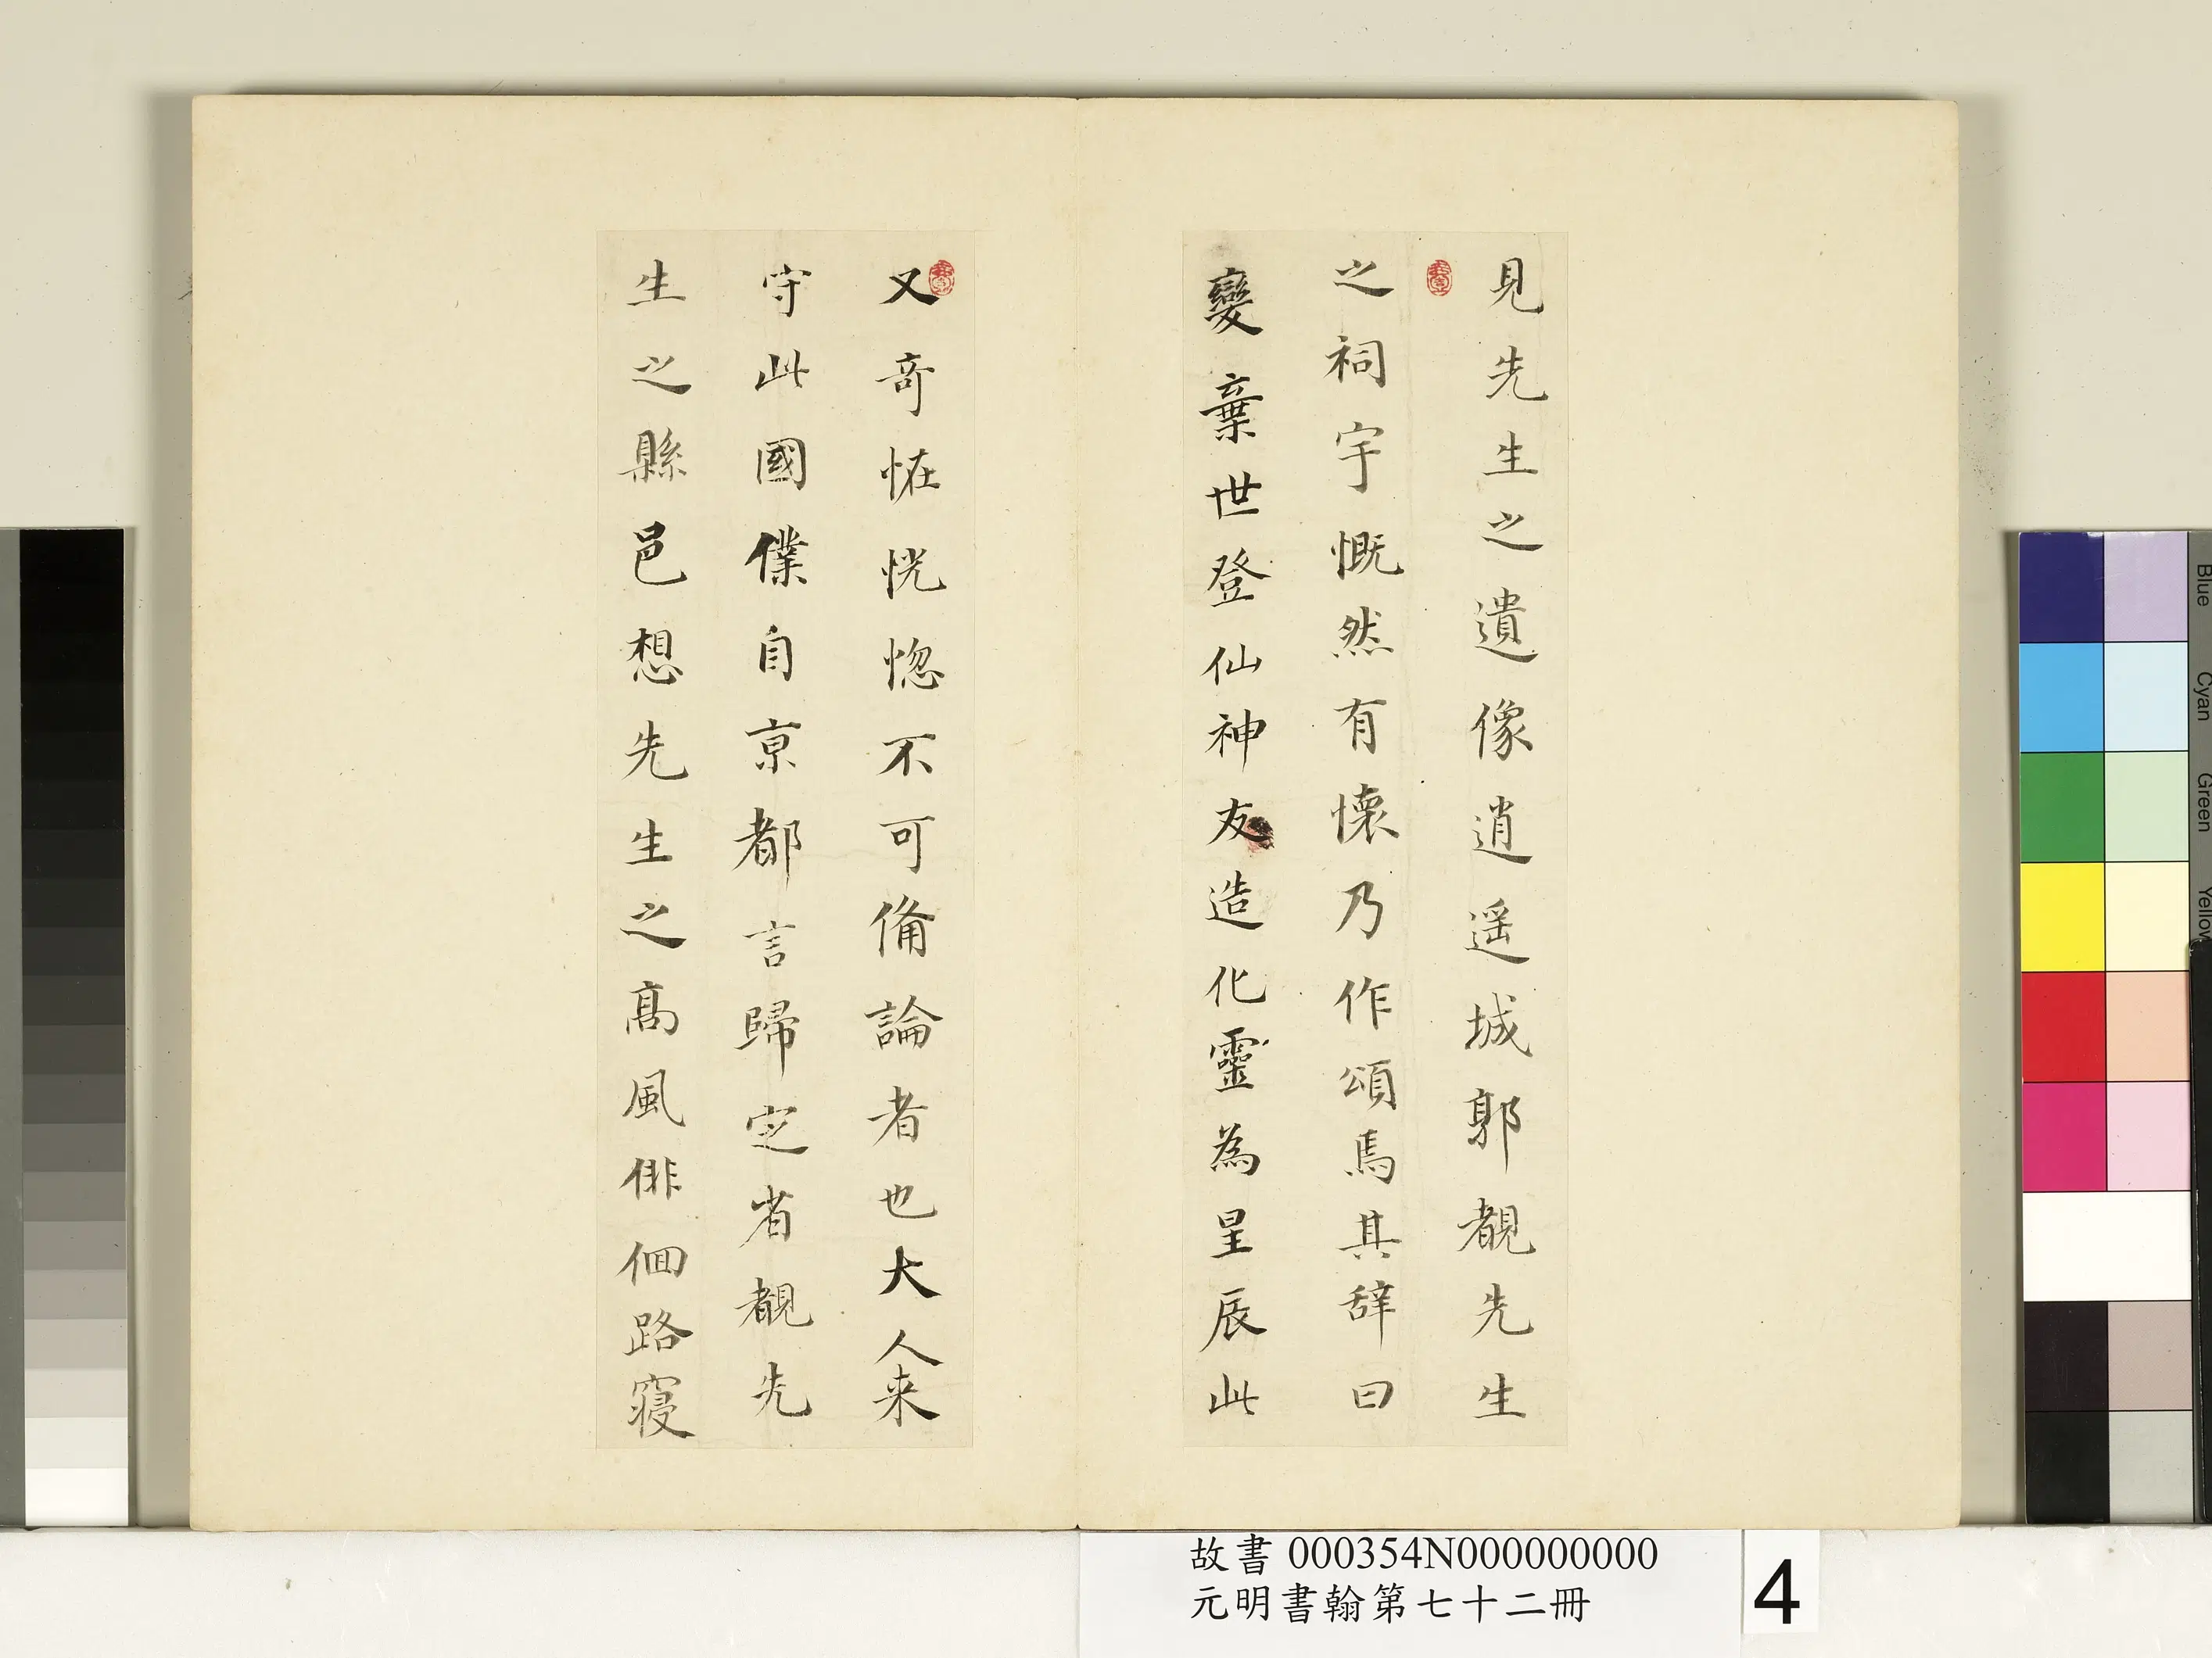 見先生之遺像逍遥城郭覩先生
之祠宇慨然有懷乃作頌焉其辞曰
變棄世登仙神友造化靈為星辰此
又奇恠恍惚不可俻論者也大人来
守此國僕自亰都言歸定省覩先
生之縣邑想先生之髙風俳佪路寢
故書 000354N000000000
元明書翰第七十二冊
4
Blue
Cyan
Green
Yellow